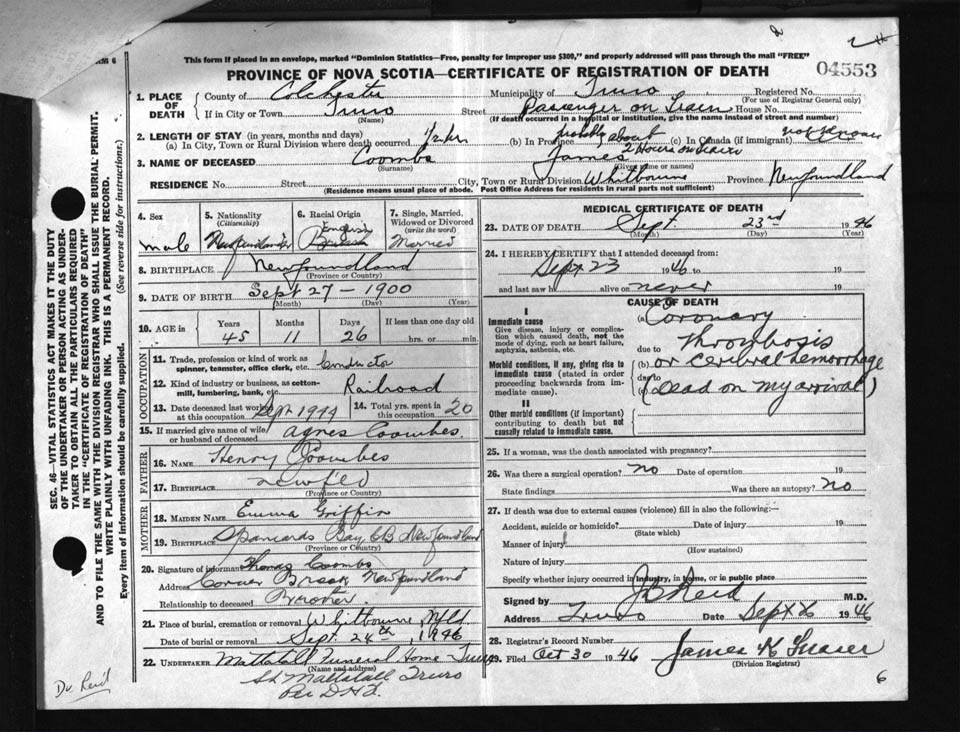 RM 6
This form if placed in an envelope, marked "Dominion Statistics—Free, penalty for improper use $300," and properly addressed will pass through the mail "FREE"
PROVINCE OF NOVA SCOTIA—CERTIFICATE OF REGISTRATION OF DEATH 04553
SEC. 46—VITAL STATISTICS ACT MAKES IT THE DUTY
OF THE UNDERTAKER OR PERSON ACTING AS UNDER-
TAKER TO OBTAIN ALL THE PARTICULARS REQUIRED
IN THE "CERTIFICATE OF REGISTRATION OF DEATH"
AND TO FILE THE SAME WITH THE DIVISION REGISTRAR WHO SHALL ISSUE THE BURIAL PERMIT.
WRITE PLAINLY WITH UNFADING INK. THIS IS A PERMANENT RECORD.
Every item of information should be carefully supplied. (See reverse side for instructions.)
1. PLACE OF DEATH County of Colchester Municipality of Truro Registered No.
(For use of Registrar General only)
If in City or Town Truro Street Passenger on Train House No.
(Name) (If death occurred in a hospital or institution, give the name instead of street and number)
2. LENGTH OF STAY (in years, months and days)
(a) In City, Town or Rural Division where death occurred 1/2 hr (b) In Province probably about 2 Hours on train (c) In Canada (if immigrant) not known
3. NAME OF DECEASED Coombs James
(Surname) (Given name or names)
RESIDENCE No. Street City, Town or Rural Division Whitbourne Province Newfoundland
(Residence means usual place of abode. Post Office Address for residents in rural parts not sufficient)
4. Sex male
5. Nationality (Citizenship) Newfoundlander
6. Racial Origin English
7. Single, Married, Widowed or Divorced (write the word) Married
8. BIRTHPLACE Newfoundland
(Province or Country)
9. DATE OF BIRTH Sept 27 - 1900
(Month) (Day) (Year)
10. AGE in Years Months Days If less than one day old
45 11 26 hrs. or min.
OCCUPATION
11. Trade, profession or kind of work as spinner, teamster, office clerk, etc. Conductor
12. Kind of industry or business, as cotton-mill, lumbering, bank, etc. Railroad
13. Date deceased last worked at this occupation 14. Total yrs. spent in this occupation 20
15. If married give name of wife or husband of deceased Agnes Coombes.
FATHER
16. NAME Henry Coombes
17. BIRTHPLACE Newfld
(Province or Country)
MOTHER
18. MAIDEN NAME Emma Griffin
19. BIRTHPLACE Spaniards Bay, CB Newfoundland
(Province or Country)
20. Signature of informant Thomas Coombs
Address Corner Brook Newfoundland
Relationship to deceased Brother
21. Place of burial, cremation or removal Whitbourne, Nfld
Date of burial or removal Sept. 24th, 1946
22. UNDERTAKER Mattatall Funeral Home Truro
(Name and address)
Mattatall Truro
MEDICAL CERTIFICATE OF DEATH
23. DATE OF DEATH Sept. 23rd 1946
(Month) (Day) (Year)
24. I HEREBY CERTIFY that I attended deceased from:
Sept 23 1946 to 19
and last saw h alive on never 19
CAUSE OF DEATH
I
Immediate cause
Give disease, injury or complication which caused death, not the mode of dying, such as heart failure, asphyxia, asthenia, etc.
Morbid conditions, if any, giving rise to immediate cause (stated in order proceeding backwards from immediate cause).
II
Other morbid conditions (if important) contributing to death but not causally related to immediate cause.
(a) Coronary
due to Thrombosis
(b) or cerebral hemorrhage
due to
(Dead on my arrival)
25. If a woman, was the death associated with pregnancy?
26. Was there a surgical operation? no Date of operation 19
State findings Was there an autopsy? No
27. If death was due to external causes (violence) fill in also the following:—
Accident, suicide or homicide? Date of injury 19
(State which)
Manner of injury
(How sustained)
Nature of injury
Specify whether injury occurred in industry, in home, or in public place
Signed by J B Reid M.D.
Address Truro Date Sept 1946
28. Registrar's Record Number
29. Filed Oct 30 1946 James K Fraser
(Division Registrar)
Dr. Reid
6